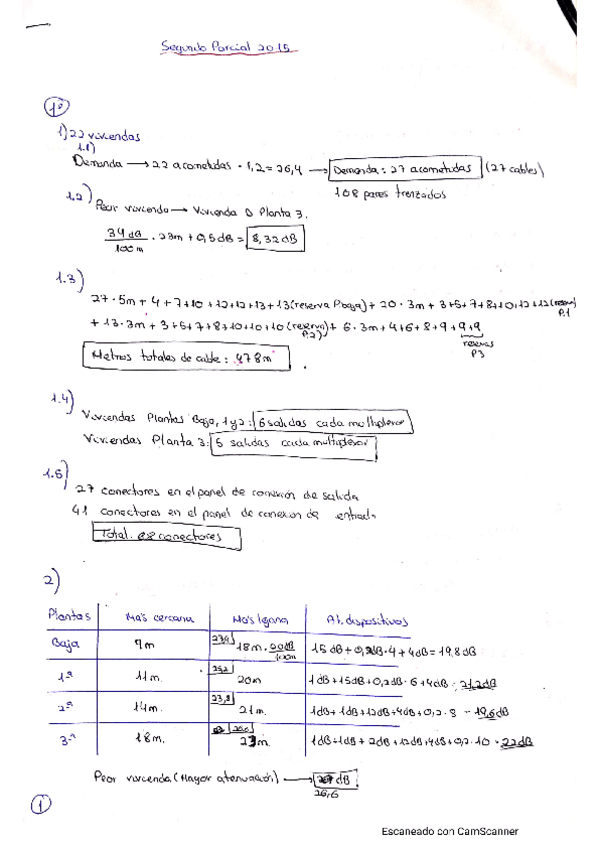 Segundo Parcial 2015
1º
1) 22 viviendas
1.1)
Demanda → 22 acometidas · 1,2 = 26,4 → Demanda: 27 acometidas (27 cables)
108 pares trenzados
1.2) Peor vivienda → Vivienda D Planta 3.
34 dB / 100 m · 23m + 0,5 dB = 8,32 dB
1.3)
27 · 5m + 4 + 7 + 10 + 12 + 12 + 13 + 13 (reserva P.baja) + 20 · 3m + 3+5+7+8+10+12+12 (reserva) P.1
+ 13 · 3m + 3+5+7+8+10+10+10 (reserva) P.2) + 6 · 3m + 4+6+8+9+9+9
reservas P3
Metros totales de cable: 478m
1.4)
Viviendas Plantas Baja, 1 y 2: 6 salidas cada multiplexor
Viviendas Planta 3: 5 salidas cada multiplexor
1.5)
27 conectores en el panel de conexión de salida
41 conectores en el panel de conexion de entrada
Total: 68 conectores
2)
Plantas Más cercana Más lejana At. dispositivos
Baja 9m 23,4 18m · 20dB/100m 15 dB + 0,2dB · 4 + 4dB = 19,8 dB
1ª 11m. 25,2 20m 1dB + 15dB + 0,2dB · 6 + 4dB = 21,2dB
2ª 14m. 23,8 21m. 1dB + 1dB + 12dB + 4dB + 0,2 · 8 = 19,6dB
3ª 18m. 23m. 1dB + 1dB + 2dB + 12dB + 4dB + 0,2 · 10 = 22dB
Peor vivienda (Mayor atenuación) → dB
26,6
1
Escaneado con CamScanner